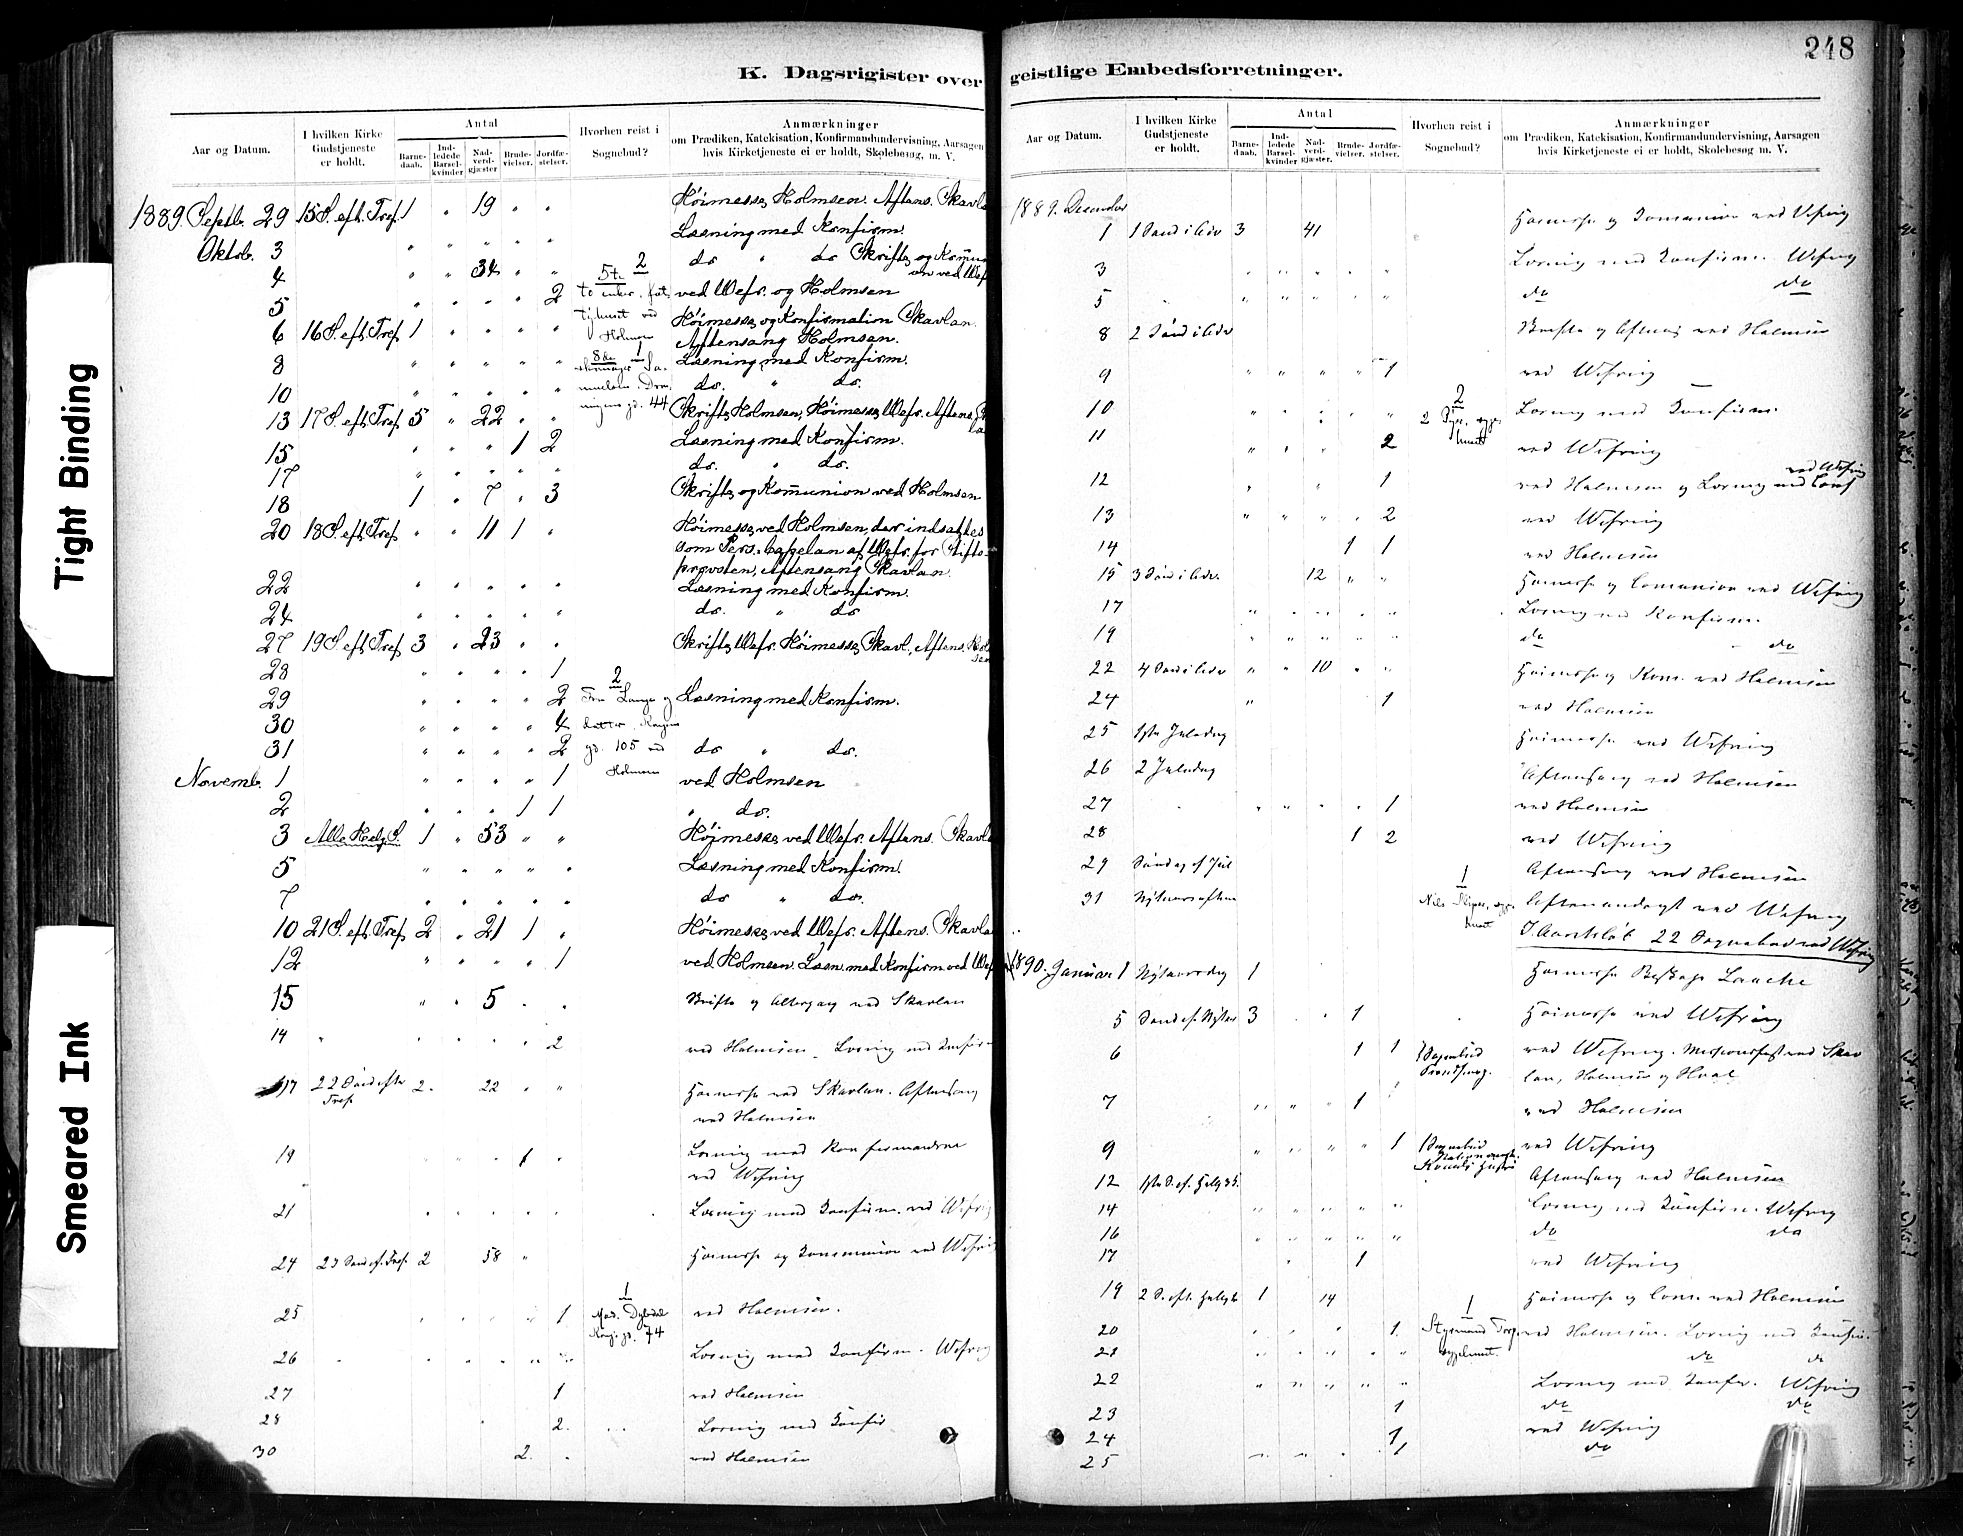 248
K. Dagsrigister over geistlige Embedsforretninger.
Tight Binding
Smeared Ink
Aar og Datum.
I hvilken Kirke Gudstjeneste er holdt.
Antal
Barne-daab.
Ind-ledede Barsel-kvinder
Nad-verd-gjæster
Brude-vielser.
Jordfæ-stelser.
Hvorhen reist i Sognebud?
Anmærkninger
om Prædiken, Katekisation, Konfirmandundervisning, Aarsagen
hvis Kirketjeneste ei er holdt, Skolebesøg, m. V.
1889. Septb. 29 15 S. eft. Tref. 1 " 19 " " Höimesse Holmsen. Aftens. Skavla
Oktob. 3 Læsning med Konfirm.
4 " " 34 " " do " do Skrifte og Kommu-
on ved Wefr
5 2 ved Wefr. og Holmsen
6 16 S. eft. Tref. 1 " " " " Höimesse og Konfirmation Skavlan.
Aftensang Holmsen.
8 Læsning med Konfirm.
10 do. " do.
13 17 S. eft. Tref. 5 " 22 " " Skrifte Holmsen, Höimesse Wefr. Aftens.
15 " " " 1 2 Læsning med Konfirm.
17 do. " do.
18 1 " 7 " 3 Skrifte og Kommunion ved Holmsen
20 18 S. eft. Tref. " " 11 1 " Höimesse ved Holmsen, der indsattes
som Pers. Capelan af Wefr. for Stifts-
provsten, Aftensang Skavlan.
22 Læsning med Konfirm.
24 do. " do
27 19 S. eft. Tref. 3 " 23 " " Skrifte Wefr. Höimesse Skavl., Aftens. Hol
sen
28 " " " " 1
29 " " " " 2 2 Læsning med Konfirm.
30 " " " " 4
31 " " " " 2 gd. 105 ved Holmsen do " do.
Novemb. 1 " " " " 1 ved Holmsen
2 " " " 1 1 " do.
3 Alle Helg. S. 1 " 53 " " Höimesse ved Wefr. Aftens. Skavla
5 Læsning med Konfirm.
7 do " do.
10 21 S. eft. Tref. 2 " 21 1 " Höimesse ved Wefr. Aftens. Skavla
12 " " " " 1 ved Holmsen. Læsn. med Konfirm ved Wef
15 " " 5 " " Skrifte og Altergang ved Skavlan
14 2 ved Holmsen. Læsning med Konfirm
17 22 Sönd efter Tref. 2. 22 " " Høimesse ved Skavlan. Aftensang
ved Holmsen
19 1 Læsning med Konfirmanderne
ved Wefring
21 Læsning med Konfirm. ved Wefring
24 23 Sönd ef. Tref. 2 58 " Høimesse og Kommunion ved Wefri
25 1 1 ved Holmsen.
gd. 74
26 Læsning med Konfirm. Wefring
27 1 ved Holmsen
28 2. Læsning med Konfir
30 2. ved Holmsen
Aar og Datum.
I hvilken Kirke Gudstjeneste er holdt.
Antal
Barne-daab.
Ind-ledede Barsel-kvinder
Nad-verd-gjæster.
Brude-vielser.
Jordfæ-stelser.
Hvorhen reist i Sognebud?
Anmærkninger
om Prædiken, Katekisation, Konfirmandundervisning, Aarsagen
hvis Kirketjeneste ei er holdt, Skolebesøg m. V.
1889. December
1 1 Sönd i Adv 3 41 Høimesse og Komunion ved Wefring
3 Læsning med Konfirm. Wefring
5 do do
8 2 Sönd i Adv Skrifte og Aftensg ved Holmsen
9 1 ved Wefring
10 2 Læsning med Konfirm.
11 2 ved Wefring
12 1 ved Holmsen og Læsning med Conf ved Wefring
13 2 ved Wefring
14 1 1 ved Holmsen
15 3 Sönd i Adv. 12 " " Høimesse og Comunion ved Wefring
17 Læsning med Konfirm.
19 do do
22 4 Sönd i Adv " " 10 " " Høimesse og Kom. ved Holmsen
24 1 ved Holmsen
25 1ste Juledag Høimesse ved Wefring
26 2 Juledag Aftensang ved Holmsen
27 1 ved Holmsen
28 1 2 ved Wefring
29 Söndag ef Jul Aftensang ved Holmsen
31 Nytaarsaften 1 Aftenandagt ved Wefring
I Aarets löb 22 Sognebud ved Wefring
1890. Januar 1 Nytaarsdag 1 Høimesse Laache
5 Sönd ef. Nytaar 3 1 Høimesse ved Wefring
6 1 1 1 Sognebud ved Wefring. Missionsfest ved Skav
lan, Holmsen og Hval
7 1 ved Holmsen
9 1 1 Sognebud ved Wefring
12 1ste S. ef. Hel. 3 K. Aftensang ved Holmsen
14 Læsning med Konfirm. Wefring
16 do do
17 1 ved Wefring
19 2 S. eft. Hellig 3 k 1 14 Høimesse og Com. ved Holmsen
20 1. 1 ved Holmsen. Læsning med Konfir.
21 do do
22 Læsning med Konfir. Wefring
23 1 do do
24 1 ved Wefring
25 1 do